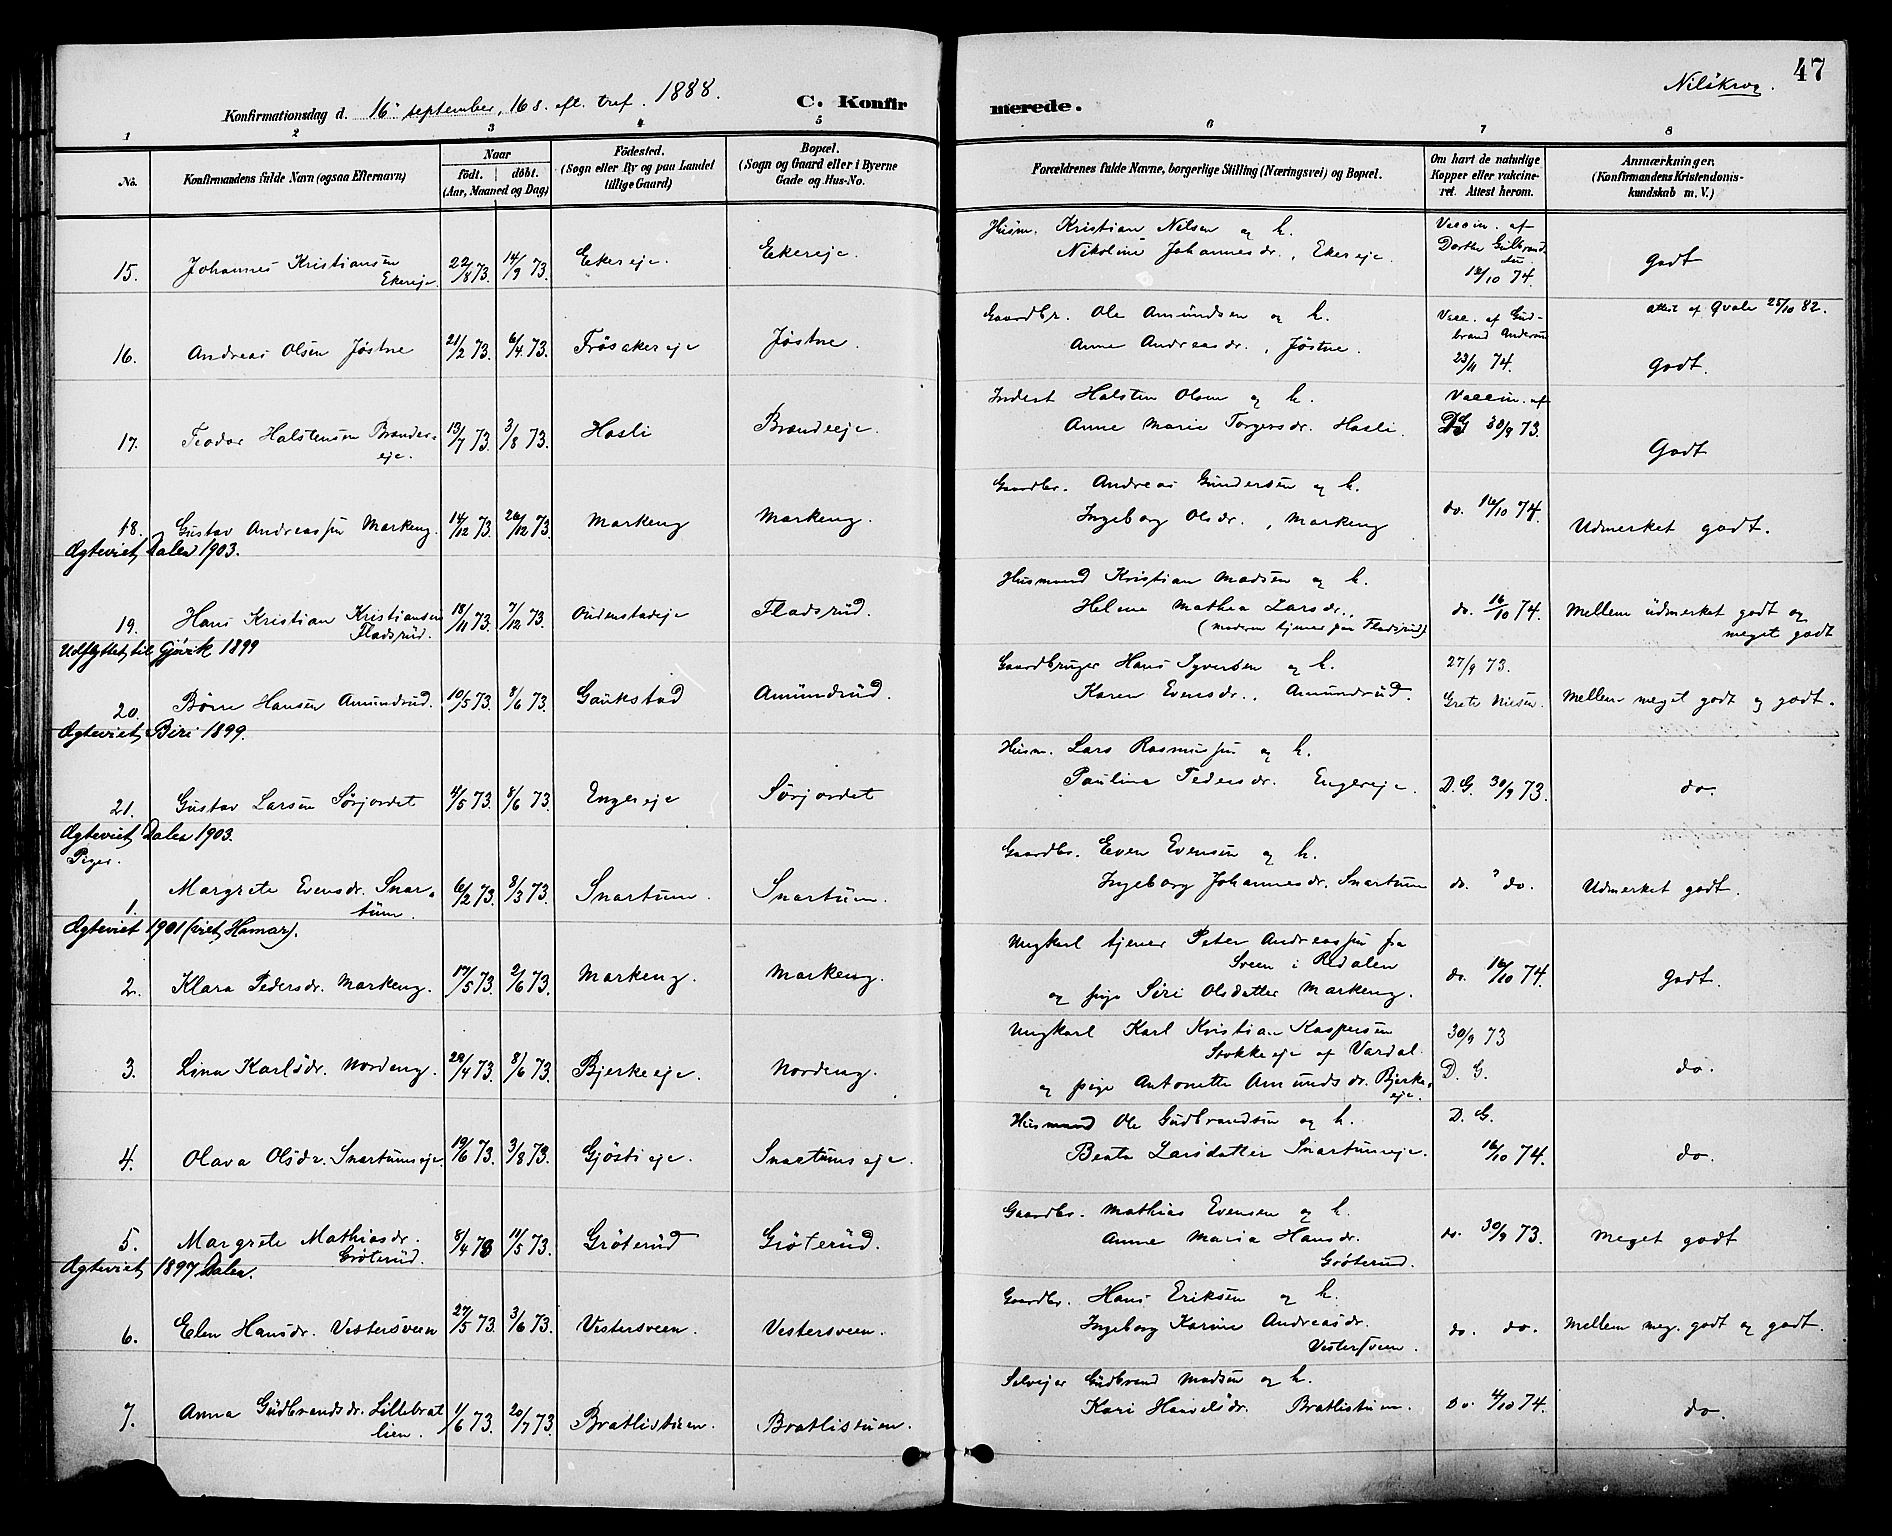 47
Nilskrog.
Konfirmationsdag d. 16 september, 16 s. eft. tref. 1888. C. Konfirmerede.
1 2 3 4 5 6 7 8
No. Konfirmandens fulde Navn (ogsaa Efternavn)
Naar født. døbt. (Aar, Maaned og Dag)
Födested. (Sogn eller By og paa Landet tillige Gaard)
Bopæl. (Sogn og Gaard eller i Byerne Gade og Hus-No.
Forældrenes fulde Navne, borgerlige Stilling (Næringsvei) og Bopæl.
Om havt de naturlige Kopper eller vakcineret. Attest herom.
Anmærkninger. (Konfirmandens Kristendomskundskab m. V.)
15. Johannes Kristiansen Ekereje 22/8 73. 14/9 73. Ekereje. Ekereje.
Husm. Kristian Nilsen og h.
Nikoline Johannesdr., Ekereje.
Vaccin. af Dorthe Gulbrandsdtr. 14/10 74. Godt
16. Andreas Olsen Jøstne 21/2 73. 6/4 73. Frøsakereje Jøstne.
Gaardbr. Ole Amundsen og h.
Anne Andreasdr., Jøstne.
Vacc. af Gudbrand Andersen 23/11 74.
Attest af Qvale 25/10 82.
Godt.
17. Teodor Halstensen Brændeseje. 13/7 73. 3/8 73. Hasli Brændeeje.
Inderst Halsten Olsen og h.
Anne Marie Torgersdr. Hasli.
Vaccin. af DG 30/9 73.
Godt
18. Gustav Andreassen Markeng. 14/12 73. 26/12 73. Markeng Markeng.
Gaardbr. Andreas Gundersen og h.
Ingeborg Olsdr., Markeng
do. 16/10 74. Udmerket godt.
Ægteviet, Dalen 1903.
19. Hans Kristian Kristiansen Fladsrud. 18/11 73. 7/12 73. Oudenstadeje Fladsrud.
Husmand Kristian Madsen og h.
Helene Mathea Larsdr.,
(moderen tjener paa Fladsrud).
do. 16/10 74. Mellem udmerket godt og meget godt
Udflyttet til Gjøvik 1899
20. Børre Hansen Amundrud. 10/5 73. 8/6 73. Gaukstad Amundrud.
Gaardbruger Hans Syversen og h.
Karen Evensdr., Amundrud.
27/9 73. Grete Nilsen. Mellem meget godt og godt.
Ægteviet, Biri 1899.
21. Gustav Larsen Sørjordet 4/5 73. 8/6 73. Engereje Sørjordet
Husm. Lars Rasmussen og h.
Pauline Pedersdr. Engereje.
D. G. 30/9 73. do.
Ægteviet, Dalen 1903.
Piger.
1. Margrete Evensdr. Snartum. 6/2 73. 8/3 73. Snartum. Snartum.
Gaardbr. Even Evensen og h.
Ingeborg Johannesdr. Snartum
do. " do. Udmerket godt.
Ægteviet 1901 (viet, Hamar).
2. Klara Pedersdr. Markeng. 17/5 73. 2/6 73. Markeng. Markeng.
Ungkarl tjener Peter Andreassen fra
Sveen i Redalen
og pige Siri Olsdatter Markeng.
do. 16/10 74. Godt.
3. Lina Karlsdr. Nordeng. 29/4 73. 8/6 73. Bjerkeeje. Nordeng.
Ungkarl Karl Kristian Kaspersen
Stokkeeje af Vardal.
og pige Antonette Amundsdr. Bjerkeeje.
30/9 73 D. G. do.
4. Olava Olsdr. Snartumseje. 19/6 73. 3/8 73. Gjøstieje. Snartumseje.
Husmand Ole Gudbrandsen og h.
Beate Larsdatter Snartumseje.
D. G. 16/10 74. do.
5. Margrete Mathiasdr. Grøterud. 8/4 73 11/5 73. Grøterud Grøterud.
Gaardbr. Mathias Evensen og h.
Anne Maria Hansdr.
Grøterud.
do. 30/9 73. Meget godt
Ægteviet, 1897 Dalen.
6. Elen Hansdr. Vestersveen 27/5 73. 3/6 73. Vestersveen. Vestersveen.
Gaardbr. Hans Eriksen og h.
Ingeborg Karine Andreasdr.
Vestersveen.
do. do. Mellem meg. godt og godt.
7. Anna Gudbrandsdr. Lillebratlien. 1/6 73. 20/7 73. Bratlistuen. Bratlistuen.
Selvejer Gudbrand Madsen og h.
Kari Haavelsdr. Bratlistuen.
Do. 4/10 74. do.